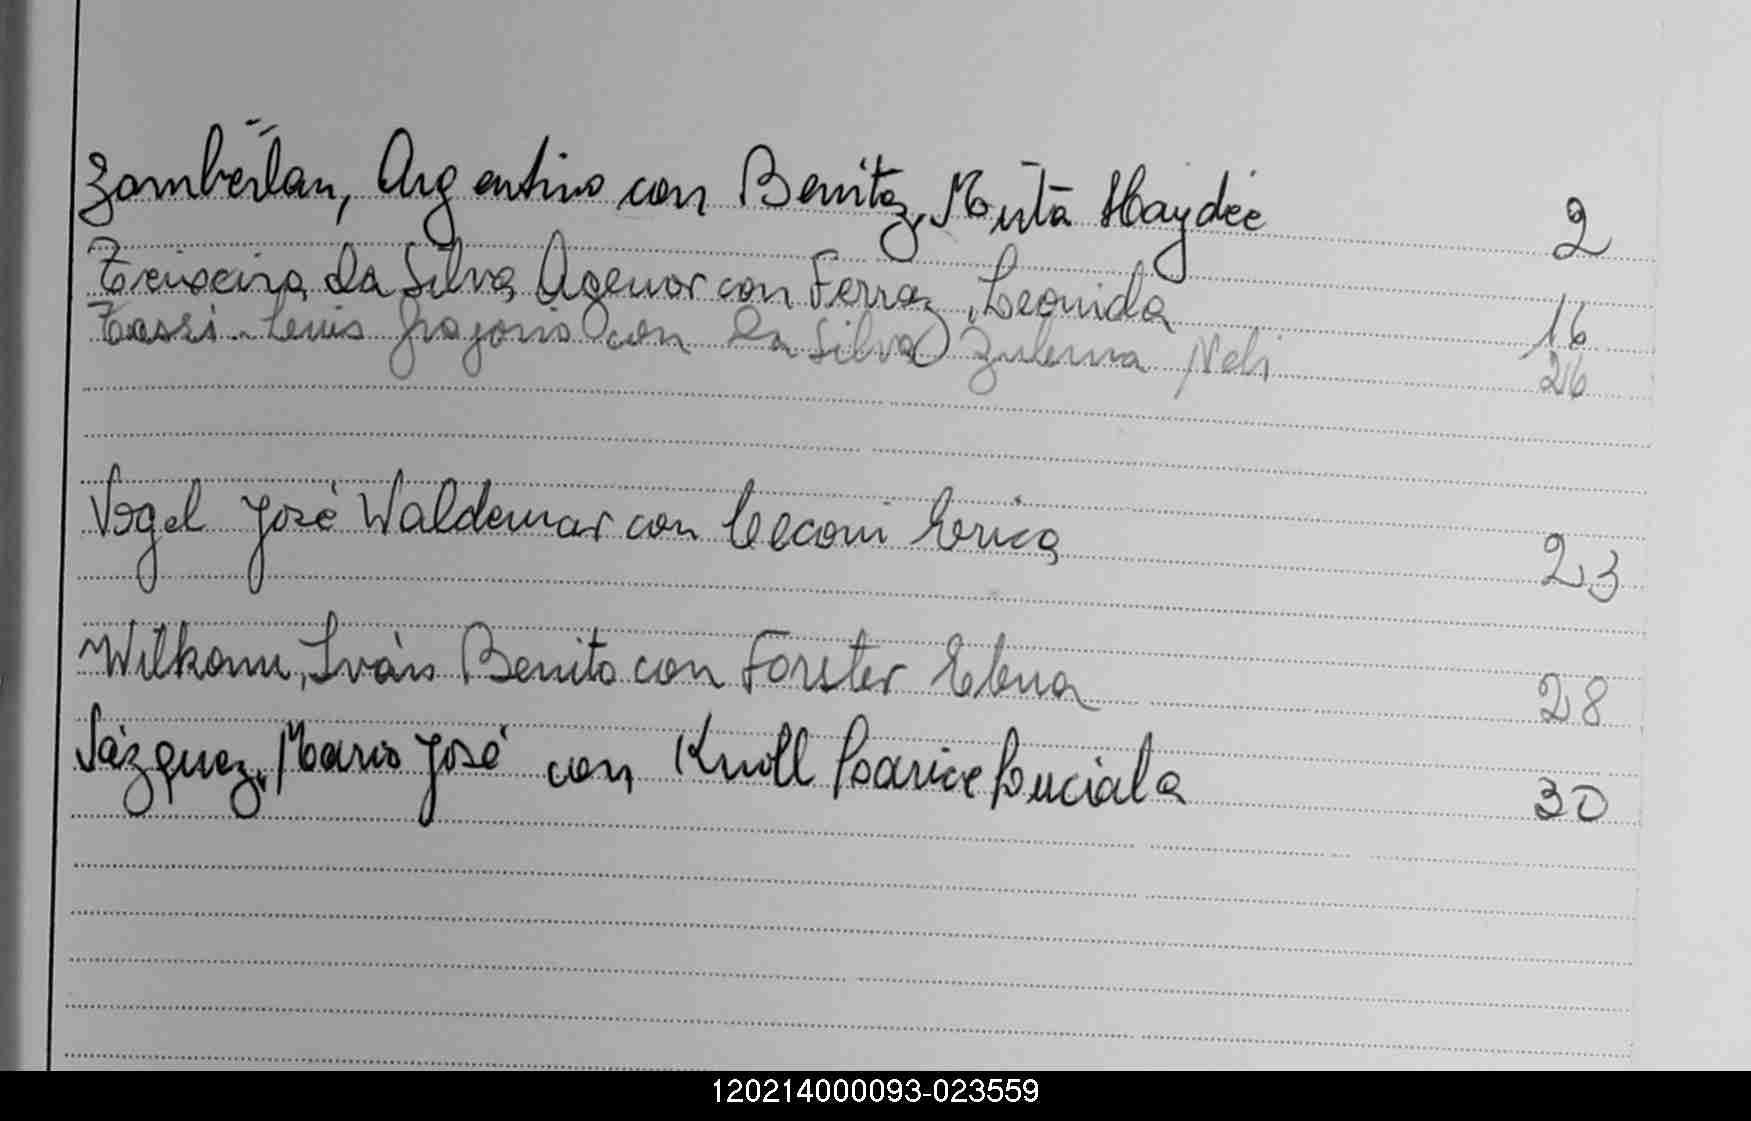 Zamberlan, Argentino con Benitez, Mirta Haydée 2
Teixeira da Silva Agenor con Ferraz, Leonida 16
Tassi Luis Gregorio con Da Silva Zulema Neli 26
Vogel José Waldemar con Ceconi Erica 23
Wilkomm, Iván Benito con Forster Elena 28
Vázquez, Mario José con Knoll Clarice 30
120214000093-023559